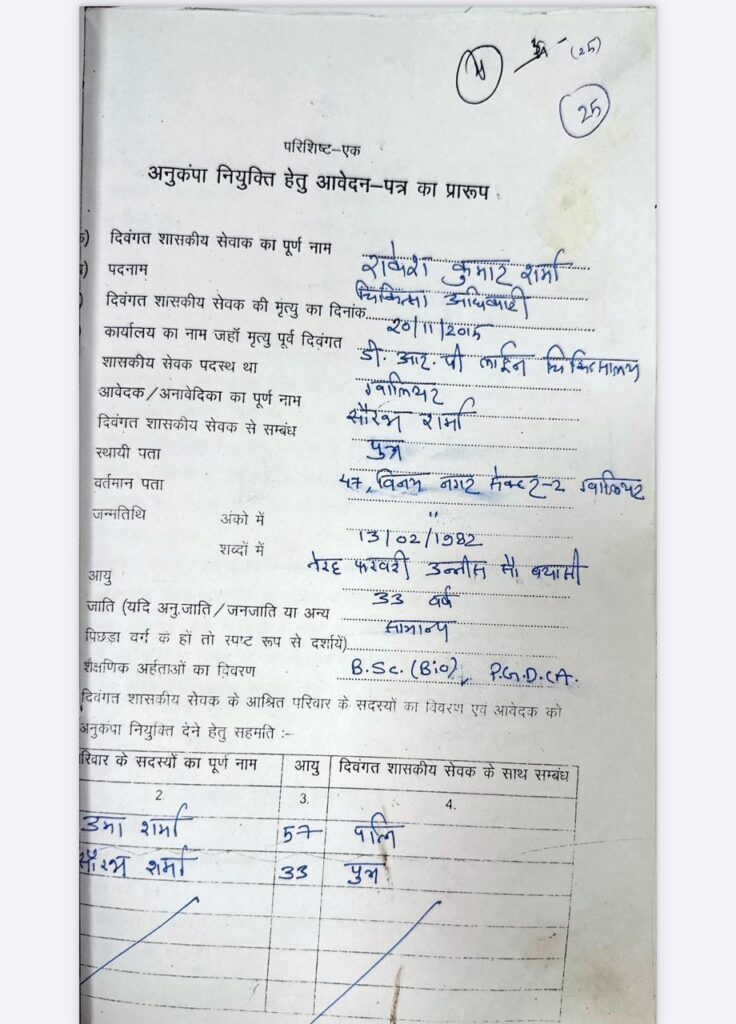 (25)
25
परिशिष्ट-एक
अनुकंपा नियुक्ति हेतु आवेदन-पत्र का प्रारूप
दिवंगत शासकीय सेवाक का पूर्ण नाम राकेश कुमार शर्मा
पदनाम चिकित्सा अधिकारी
दिवंगत शासकीय सेवक की मृत्यु का दिनांक 20/11/2015
कार्यालय का नाम जहॉ मृत्यु पूर्व दिवंगत डी. आर. पी लाईन चिकित्सालय
शासकीय सेवक पदस्थ था ग्वालियर
आवेदक/अनावेदिका का पूर्ण नाम सौरभ शर्मा
दिवंगत शासकीय सेवक से सम्बंध पुत्र
स्थायी पता 47, विनय नगर सेक्टर-2 ग्वालियर
वर्तमान पता "
जन्मतिथि अंको में 13/02/1982
शब्दों में तेरह फरवरी उन्नीस सौ बयासी
आयु 33 वर्ष
जाति (यदि अनु.जाति/जनजाति या अन्य सामान्य
पिछडा वर्ग के हों तो स्पष्ट रूप से दर्शायें)
शैक्षणिक अर्हताओं का विवरण B.Sc. (Bio), P.G.D.CA.
दिवंगत शासकीय सेवक के आश्रित परिवार के सदस्यों का विवरण एवं आवेदक को
अनुकंपा नियुक्ति देने हेतु सहमति :-
रिवार के सदस्यों का पूर्ण नाम आयु दिवंगत शासकीय सेवक के साथ सम्बंध
2. 3. 4.
उमा शर्मा 57 पत्नि
सौरभ शर्मा 33 पुत्र